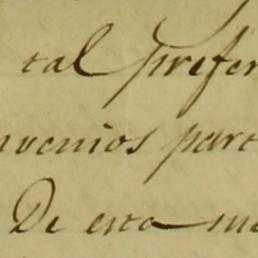 tal prefer
nvenios part
De esta me